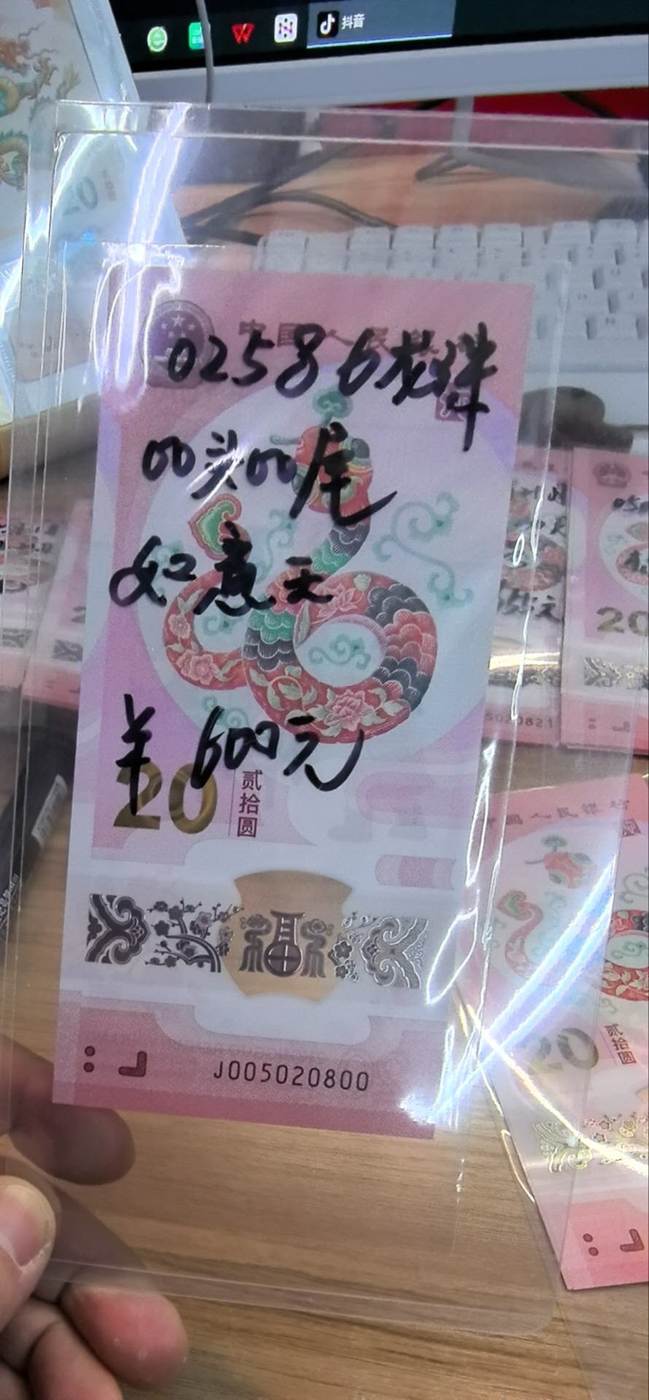 抖音
中国人民银行
02586龙珠
00头00尾
如意天
¥600元
20
贰拾圆
福
J005020800
20
贰拾圆
20